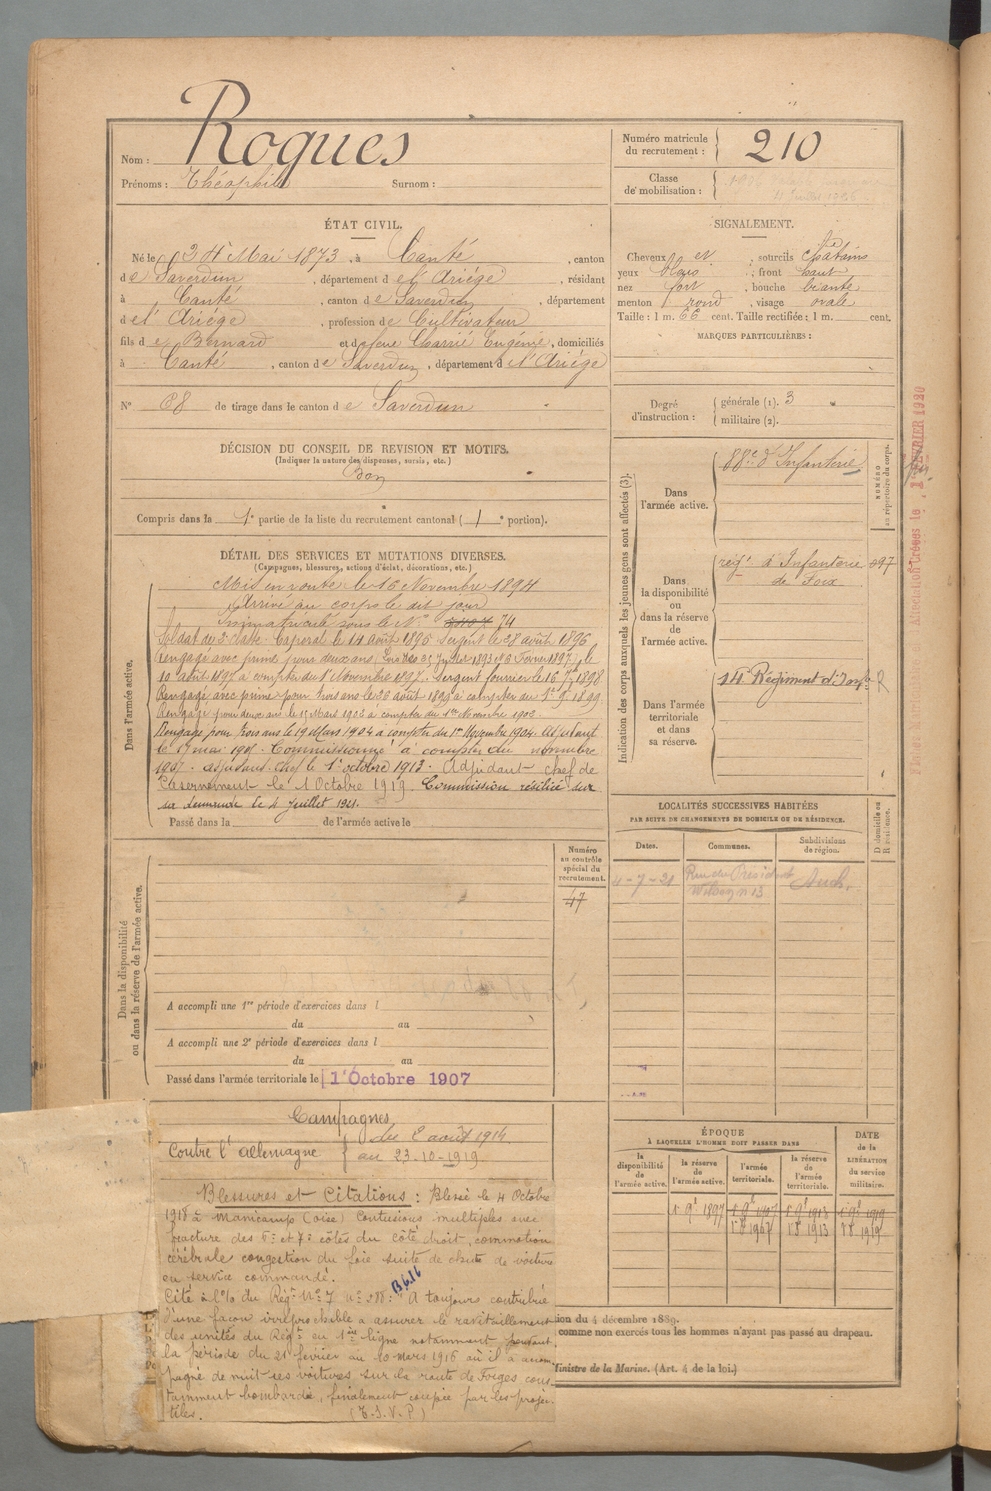 Nom : Roques
Prénoms : Théophile Surnom :
Numéro matricule du recrutement : 210
Classe de mobilisation :
ÉTAT CIVIL.
Né le 24 Mai 1873, à Canté, canton
de Saverdun, département de l'Ariège, résidant
à Canté, canton de Saverdun, département
de l'Ariège, profession de Cultivateur
fils de Bernard et de feue Charrié Eugénie, domiciliés
à Canté, canton de Saverdun, département de l'Ariège
N° 68 de tirage dans le canton de Saverdun
SIGNALEMENT.
Cheveux et ; sourcils châtains
yeux bleus ; front haut
nez fort, bouche béante
menton rond, visage ovale
Taille : 1 m. 66 cent. Taille rectifiée : 1 m. cent.
MARQUES PARTICULIÈRES :
Degré d'instruction : générale (1). 3
militaire (2).
DÉCISION DU CONSEIL DE REVISION ET MOTIFS.
(Indiquer la nature des dispenses, sursis, etc.)
Bon
Compris dans la 1e partie de la liste du recrutement cantonal (1e portion).
DÉTAIL DES SERVICES ET MUTATIONS DIVERSES.
(Campagnes, blessures, actions d'éclat, décorations, etc.)
Dans l'armée active.
Mis en route le 16 Novembre 1894
Arrivé au corps le dit jour
Immatriculé sous le N° 74
Soldat de 2e classe. Caporal le 14 août 1895. Sergent le 28 août 1896
Rengagé avec prime pour deux ans le
10 août 1897 à compter du 1 Novembre 1897. Sergent fourrier le 16 1898
Rengagé avec prime pour trois ans le 26 août 1899 à compter du 1er 9 1899
Rengagé pour deux ans le 15 Mars 1902 à compter du 1er Novembre 1902.
Rengagé pour trois ans le 19 Mars 1904 à compter du 1er Novembre 1904. Adjudant
le 19 mai 1907. Commissionné à compter du novembre
1907. adjudant-chef le 1er octobre 1913. Adjudant chef de
Casernement le 1 Octobre 1919. Commission résiliée sur
sa demande le 4 juillet 1921.
Passé dans la de l'armée active le
Indication des corps auxquels les jeunes gens sont affectés (3).
NUMÉRO au répertoire du corps.
Dans l'armée active. 88e d'Infanterie
Dans la disponibilité ou dans la réserve de l'armée active. régt d'Infanterie de Foix 297
Dans l'armée territoriale et dans sa réserve. 14e Régiment d'Infie R
1er FÉVRIER 1920
LOCALITÉS SUCCESSIVES HABITÉES
PAR SUITE DE CHANGEMENTS DE DOMICILE OU DE RÉSIDENCE.
Dates. Communes. Subdivisions de région. D domicile ou R résidence.
4-7-21 Rue du Président Wilson n 13 Auch.
Dans la disponibilité ou dans la réserve de l'armée active.
Numéro au contrôle spécial du recrutement.
47
A accompli une 1re période d'exercices dans l
du au
A accompli une 2e période d'exercices dans l
du au
Passé dans l'armée territoriale le 1er Octobre 1907
Campagnes
Contre l'allemagne { du 2 août 1914
au 23-10-1919
Blessures et Citations : Blessé le 4 Octobre
1918 à Manicamp (Oise) Contusions multiples avec
fracture des 6e et 7e côtes du côté droit, commotion
cérébrale congestion du foie suite de chute de voiture
en service commandé.
Cité à l'O. du Régt N° 7 n° 288 : "A toujours contribué
d'une façon irréprochable a assurer le ravitaillement
des unités du Régt en 1ère ligne notamment pendant
la période du 21 février au 10 mars 1916 où il a accom
pagné de nuit ses voitures sur la route de Forges cons
tamment bombardée, finalement coupée par les projec
tiles. (T.S.V.P)
ÉPOQUE
À LAQUELLE L'HOMME DOIT PASSER DANS
la disponibilité de l'armée active. la réserve de l'armée active. l'armée territoriale. la réserve de l'armée territoriale.
DATE de la LIBÉRATION du service militaire.
1er 9e 1897 1er 9e 1907 1er 9e 1913 1er 9e 1919
1er 8 1907 1er 8 1913 1er 8 1919
ion du 4 décembre 1889.
comme non exercés tous les hommes n'ayant pas passé au drapeau.
Ministre de la Marine. (Art. 4 de la loi.)